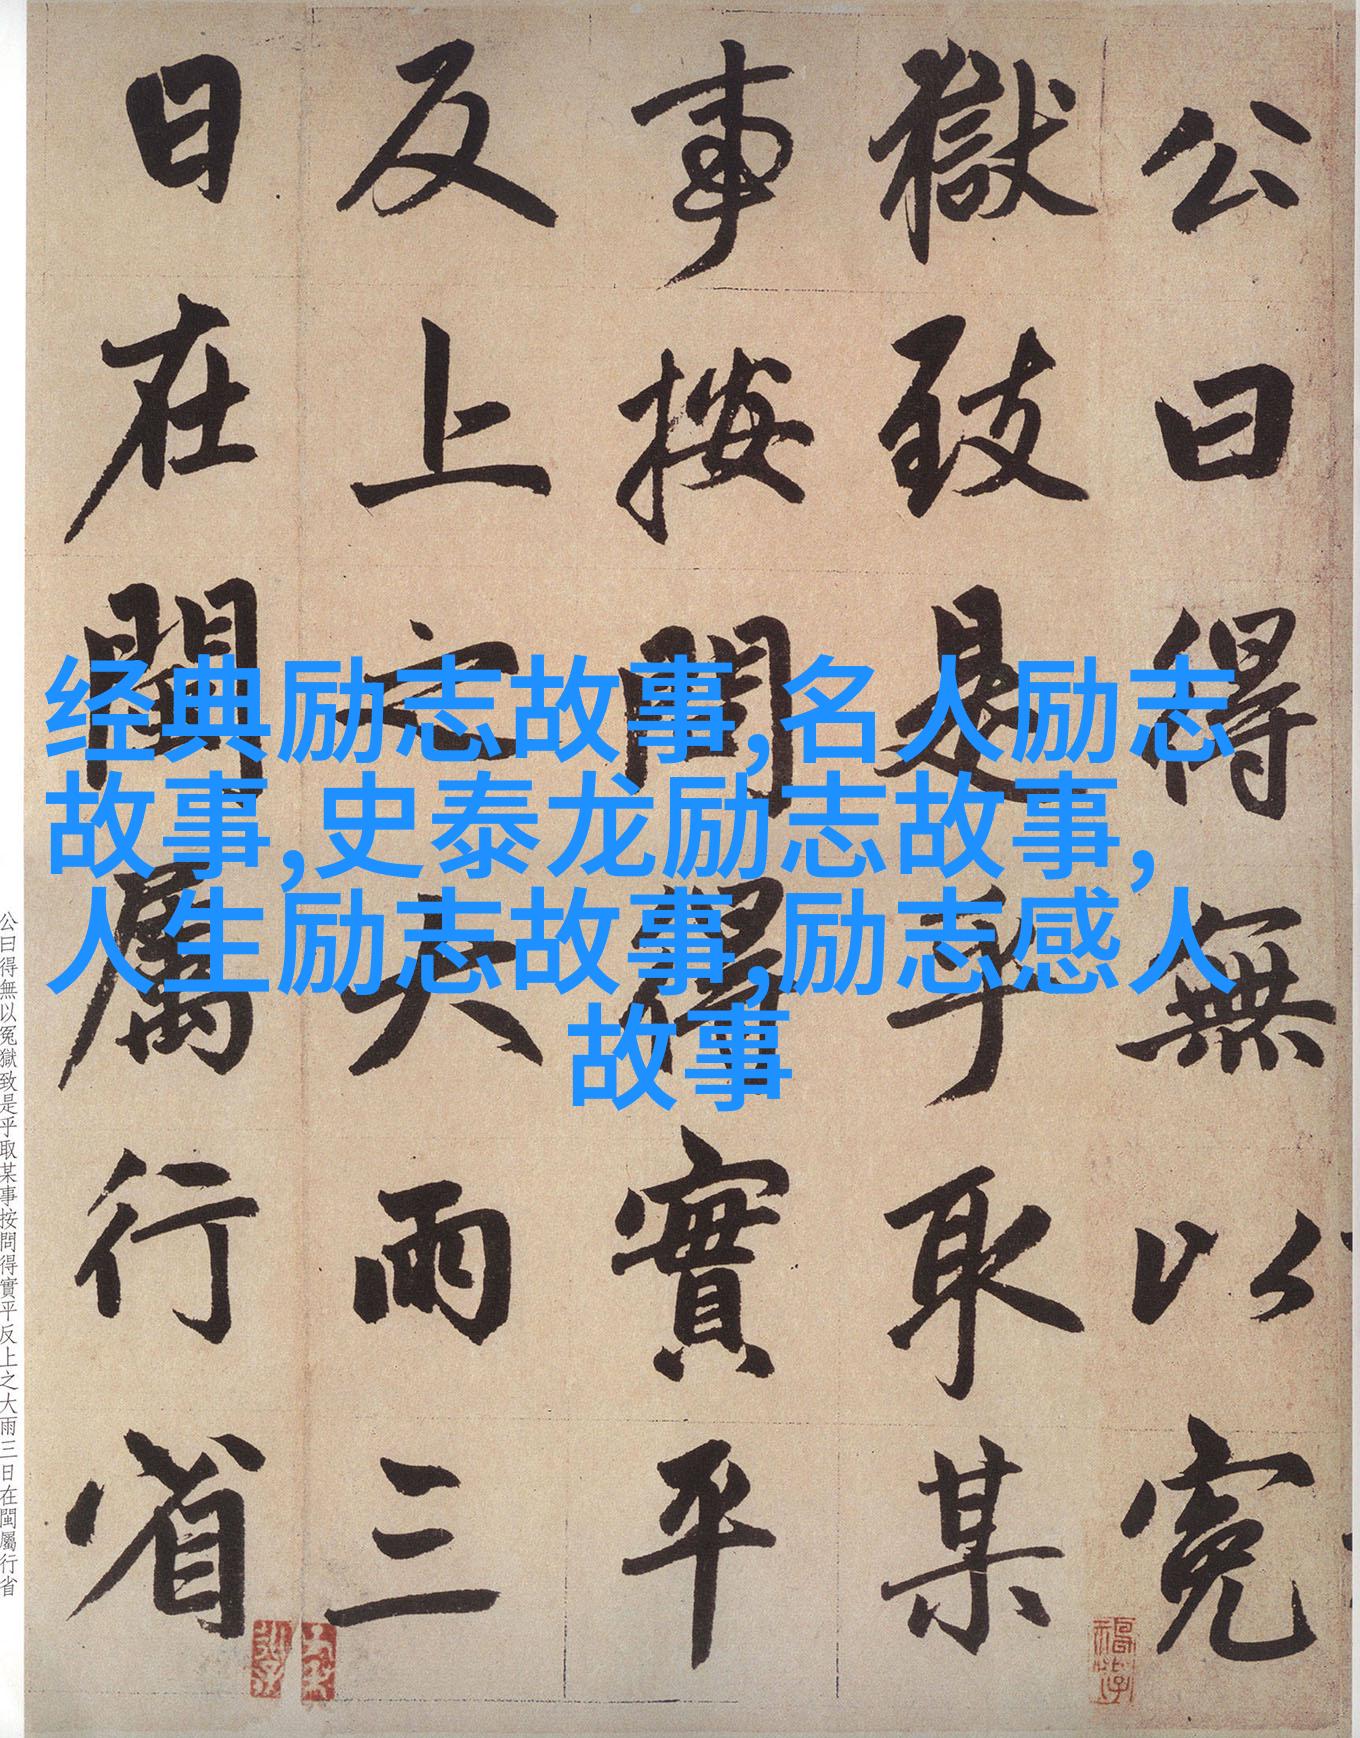 公曰得無以冤
獄致是乎取某
事按問得實平
反上之大雨三
日在閩屬行省
经典励志故事,名人励志
故事,史泰龙励志故事,
人生励志故事,励志感人
故事
公曰得無以冤獄致是乎取某事按問得實平反上之大雨三日在閩屬行省